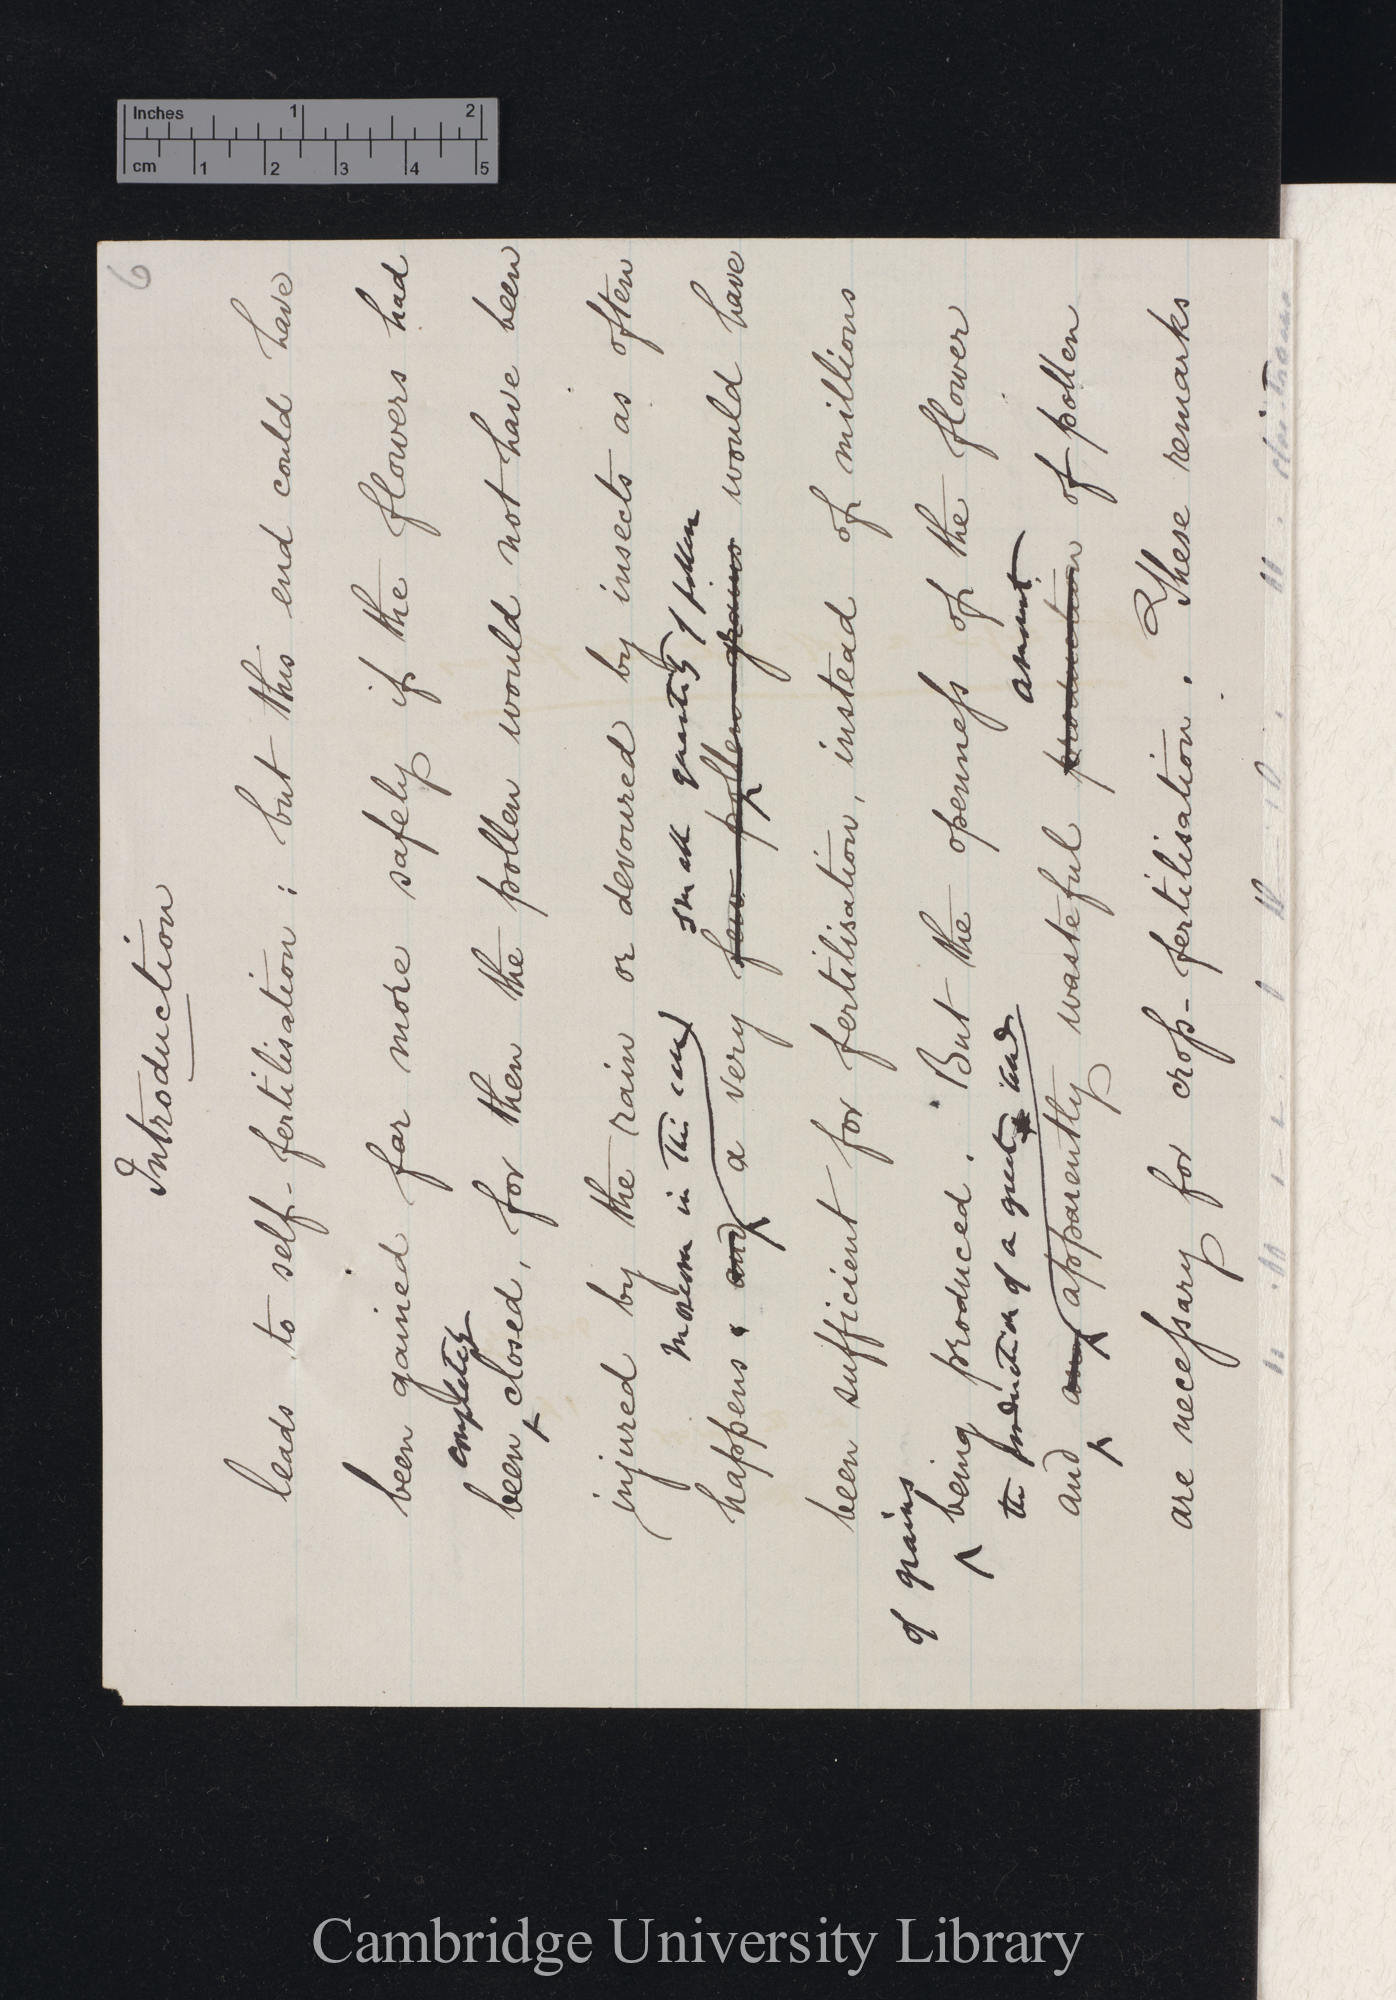 Inches 1 2
cm 1 2 3 4 5
6
Introduction
leads to self-fertilisation; but this end could have
been gained far more safely if the flowers had
completely
been closed, for then the pollen would not have been
injured by the rain or devoured by insects as often
Moreover in this case small quantity of pollen
happens. and a very few pollen grains would have
been sufficient for fertilisation, instead of millions
of grains
being produced. But the openness of the flower
the production of a great and amount
and an apparently wasteful production of pollen
are necessary for cross-fertilisation. These remarks
Cambridge University Library